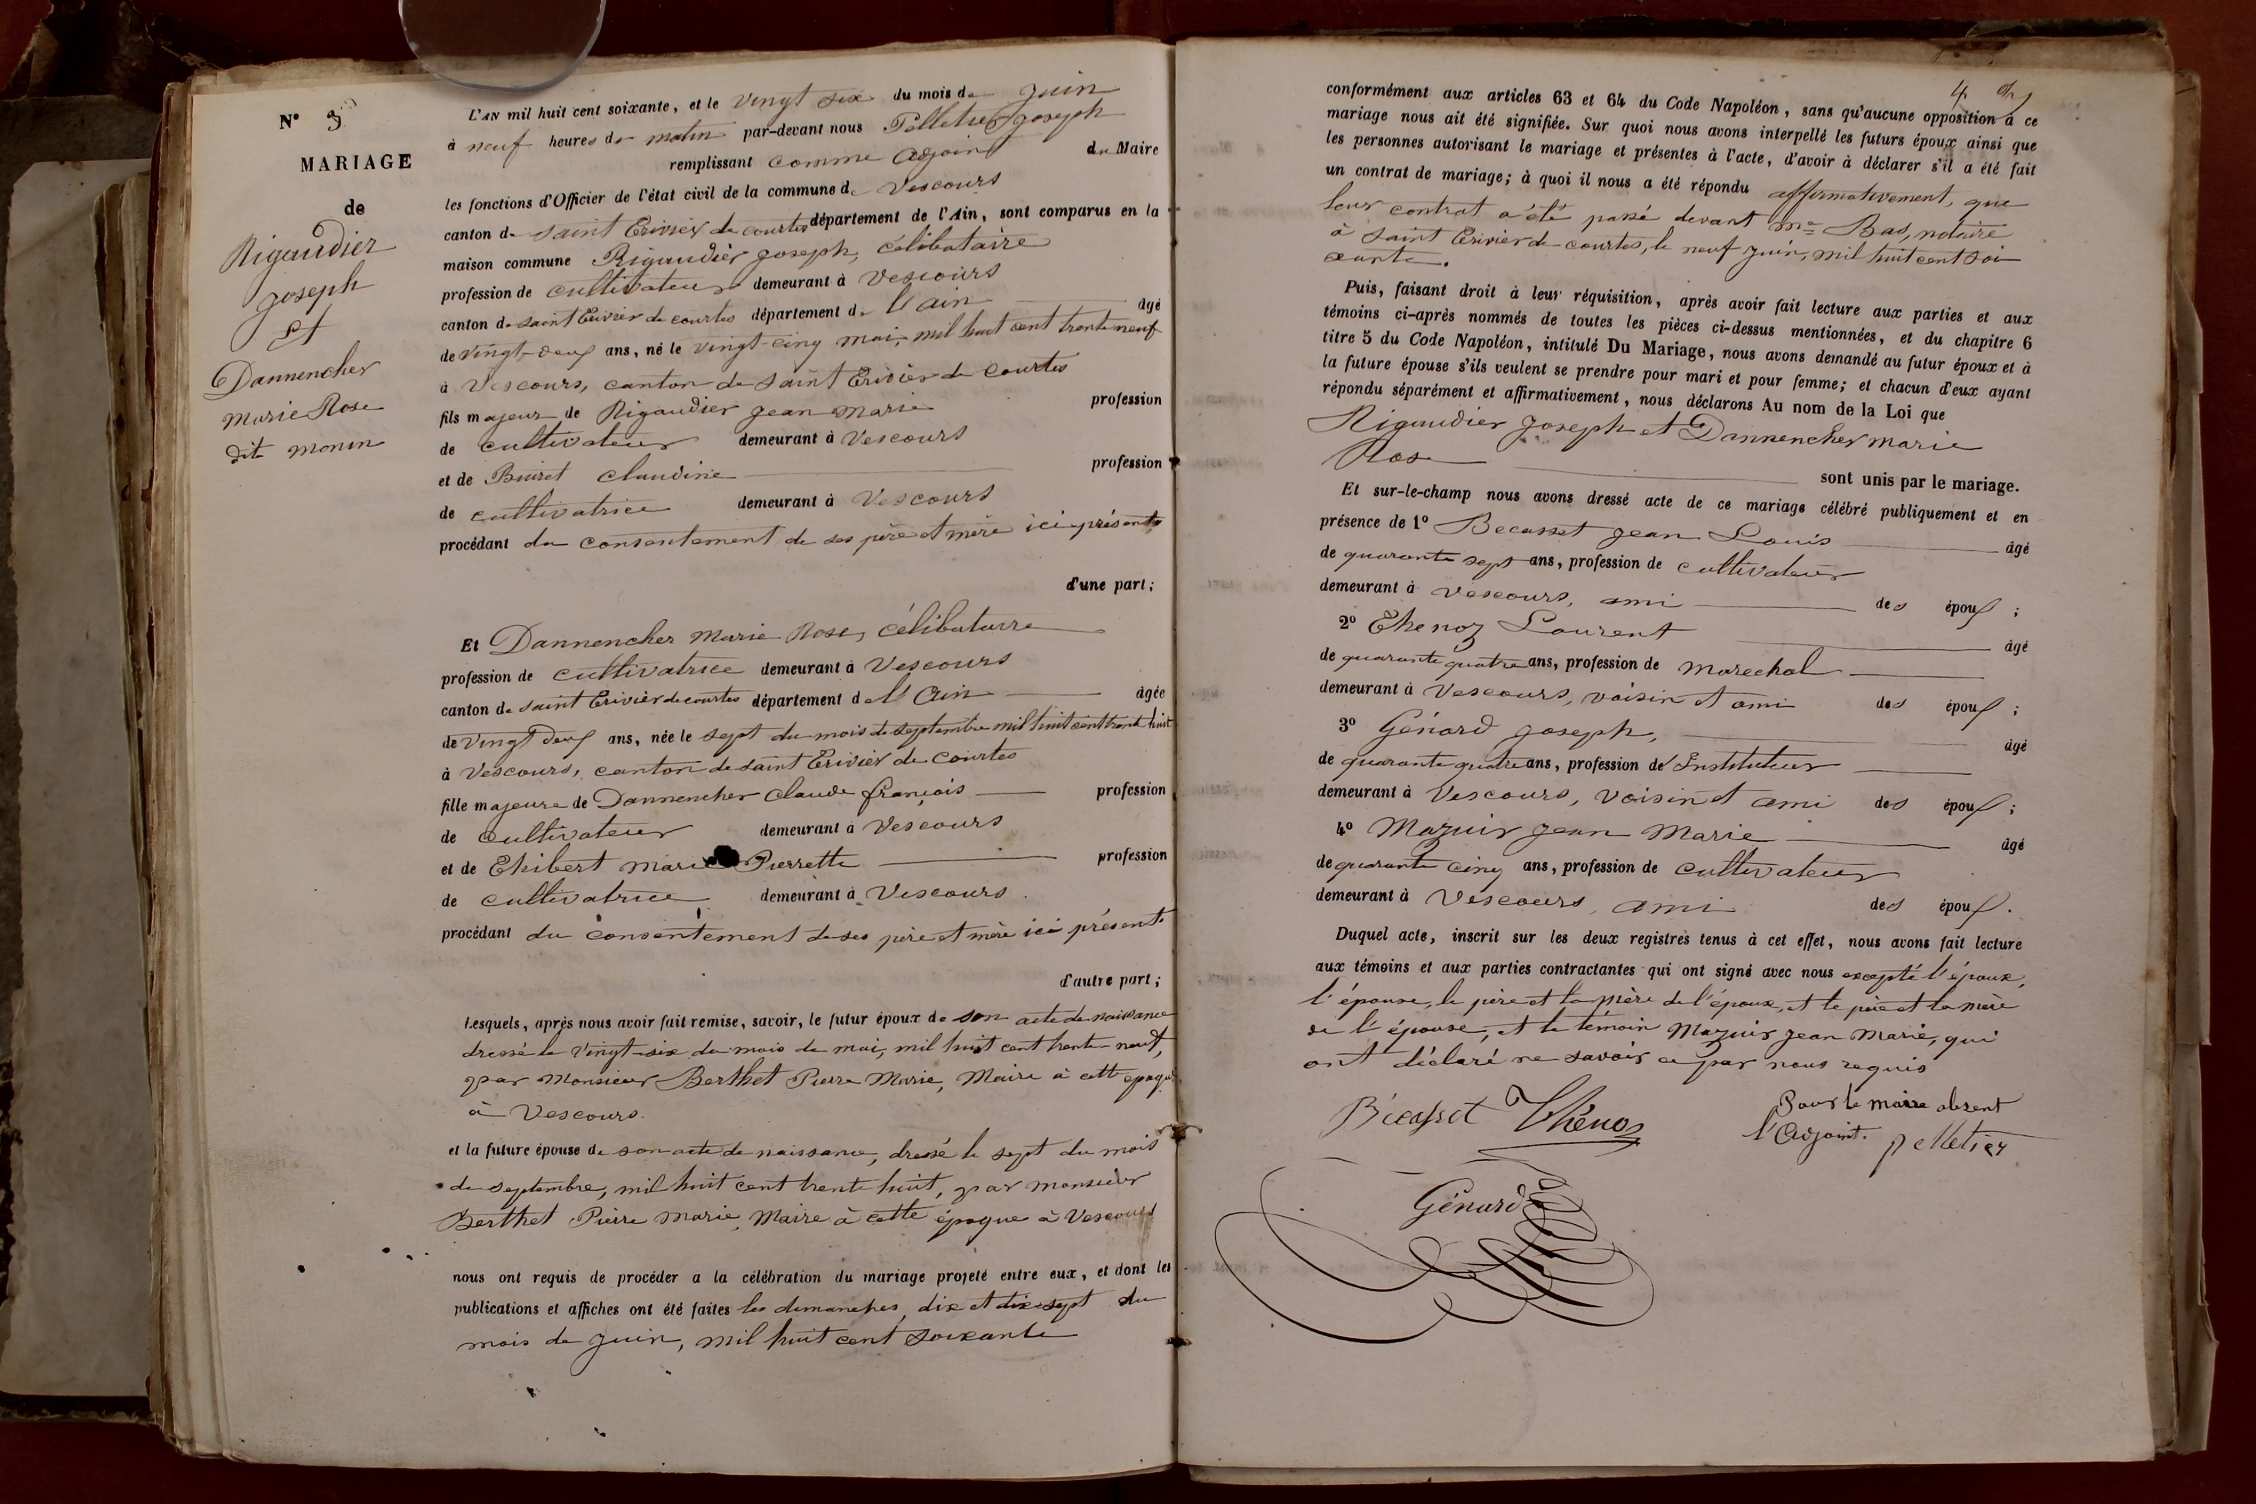 N° 3
MARIAGE
de
Rigaudier
Joseph
Et
Dannencher
Marie Rose
dit monin
L'AN mil huit cent soixante, et le vingt six du mois de Juin
à neuf heures du matin par-devant nous Pelletier Joseph
remplissant comme adjoint du Maire
les fonctions d'Officier de l'état civil de la commune de Vescours
canton de saint Trivier de courtes département de l'Ain, sont comparus en la
maison commune Rigaudier Joseph, célibataire
profession de cultivateur demeurant à Vescours
canton de saint Trivier de courtes département de l'ain âgé
de vingt-deux ans, né le vingt-cinq mai, mil huit cent trente neuf
à Vescours, canton de saint Trivier de Courtes
fils majeur de Rigaudier Jean Marie profession
de cultivateur demeurant à Vescours
et de Buiret Claudine profession
de cultivatrice demeurant à Vescours
procédant du consentement de ses père et mère ici présents
d'une part ;
Et Dannencher Marie Rose, célibataire
profession de cultivatrice demeurant à Vescours
canton de saint Trivier de courtes département de l'Ain âgée
de vingt deux ans, née le sept du mois de septembre mil huit cent trente huit
à Vescours, canton de saint Trivier de Courtes
fille majeure de Dannencher Claude françois profession
de cultivateur demeurant à Vescours
et de Thibert Marie Pierrette profession
de cultivatrice demeurant à Vescours
procédant du consentement de ses père et mère ici présents
d'autre part ;
Lesquels, après nous avoir fait remise, savoir, le futur époux de son acte de naissance
dressé le vingt-six du mois de mai, mil huit cent trente-neuf,
par Monsieur Berthet Pierre Marie, Maire à cette époque
à Vescours.
et la future épouse de son acte de naissance, dressé le sept du mois
de septembre, mil huit cent trente huit, par monsieur
Berthet Pierre Marie, Maire à cette époque à Vescours
nous ont requis de procéder a la célébration du mariage projeté entre eux, et dont les
publications et affiches ont été faites les dimanches, dix et dix-sept du
mois de Juin, mil huit cent soixante
4
conformément aux articles 63 et 64 du Code Napoléon, sans qu'aucune opposition à ce
mariage nous ait été signifiée. Sur quoi nous avons interpellé les futurs époux ainsi que
les personnes autorisant le mariage et présentes à l'acte, d'avoir à déclarer s'il a été fait
un contrat de mariage; à quoi il nous a été répondu affirmativement, que
leur contrat a été passé devant Me Bas, notaire
à saint Trivier de courtes, le neuf Juin, mil huit cent soi
xante.
Puis, faisant droit à leur réquisition, après avoir fait lecture aux parties et aux
témoins ci-après nommés de toutes les pièces ci-dessus mentionnées, et du chapitre 6
titre 5 du Code Napoléon, intitulé Du Mariage, nous avons demandé au futur époux et à
la future épouse s'ils veulent se prendre pour mari et pour femme; et chacun d'eux ayant
répondu séparément et affirmativement, nous déclarons Au nom de la Loi que
Rigaudier Joseph et Dannencher marie
Rose
sont unis par le mariage.
Et sur-le-champ nous avons dressé acte de ce mariage célébré publiquement et en
présence de 1° Becasset Jean Louis âgé
de quarante sept ans, profession de cultivateur
demeurant à Vescours, ami des époux ;
2° Thenoz Laurent âgé
de quarante quatre ans, profession de marechal
demeurant à Vescours, voisin et ami des époux ;
3° Génard Joseph, âgé
de quarante quatre ans, profession de Instituteur
demeurant à Vescours, voisin et ami des époux ;
4° Mazuir Jean Marie âgé
de quarante cinq ans, profession de cultivateur
demeurant à Vescours, ami des époux.
Duquel acte, inscrit sur les deux registres tenus à cet effet, nous avons fait lecture
aux témoins et aux parties contractantes qui ont signé avec nous excepté l'époux,
l'épouse, le père et la mère de l'époux, et le père et la mère
de l'épouse, et le témoin Mazuir Jean Marie, qui
ont déclaré ne savoir ce par nous requis
Bécasset Thénoz
Pour le maire absent
l'Adjoint. pelletier
Génard